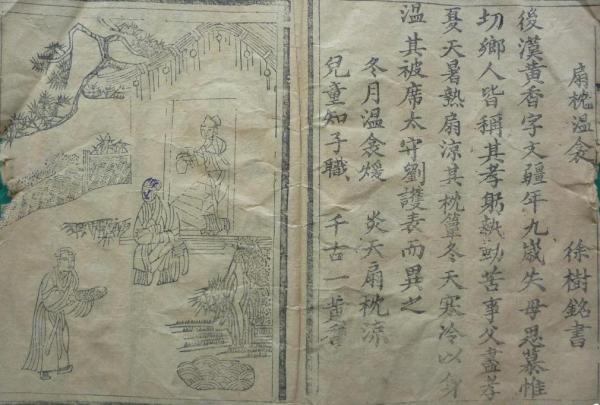 扇枕温衾
徐樹銘書
後漢黃香字文疆年九歲失母思慕惟
切鄉人皆稱其孝躬執勤苦事父盡孝
夏天暑熱扇涼其枕簟冬天寒冷以身
温其被席太守劉護表而異之
冬月温衾煖 炎天扇枕涼
兒童知子職 千古一黃香